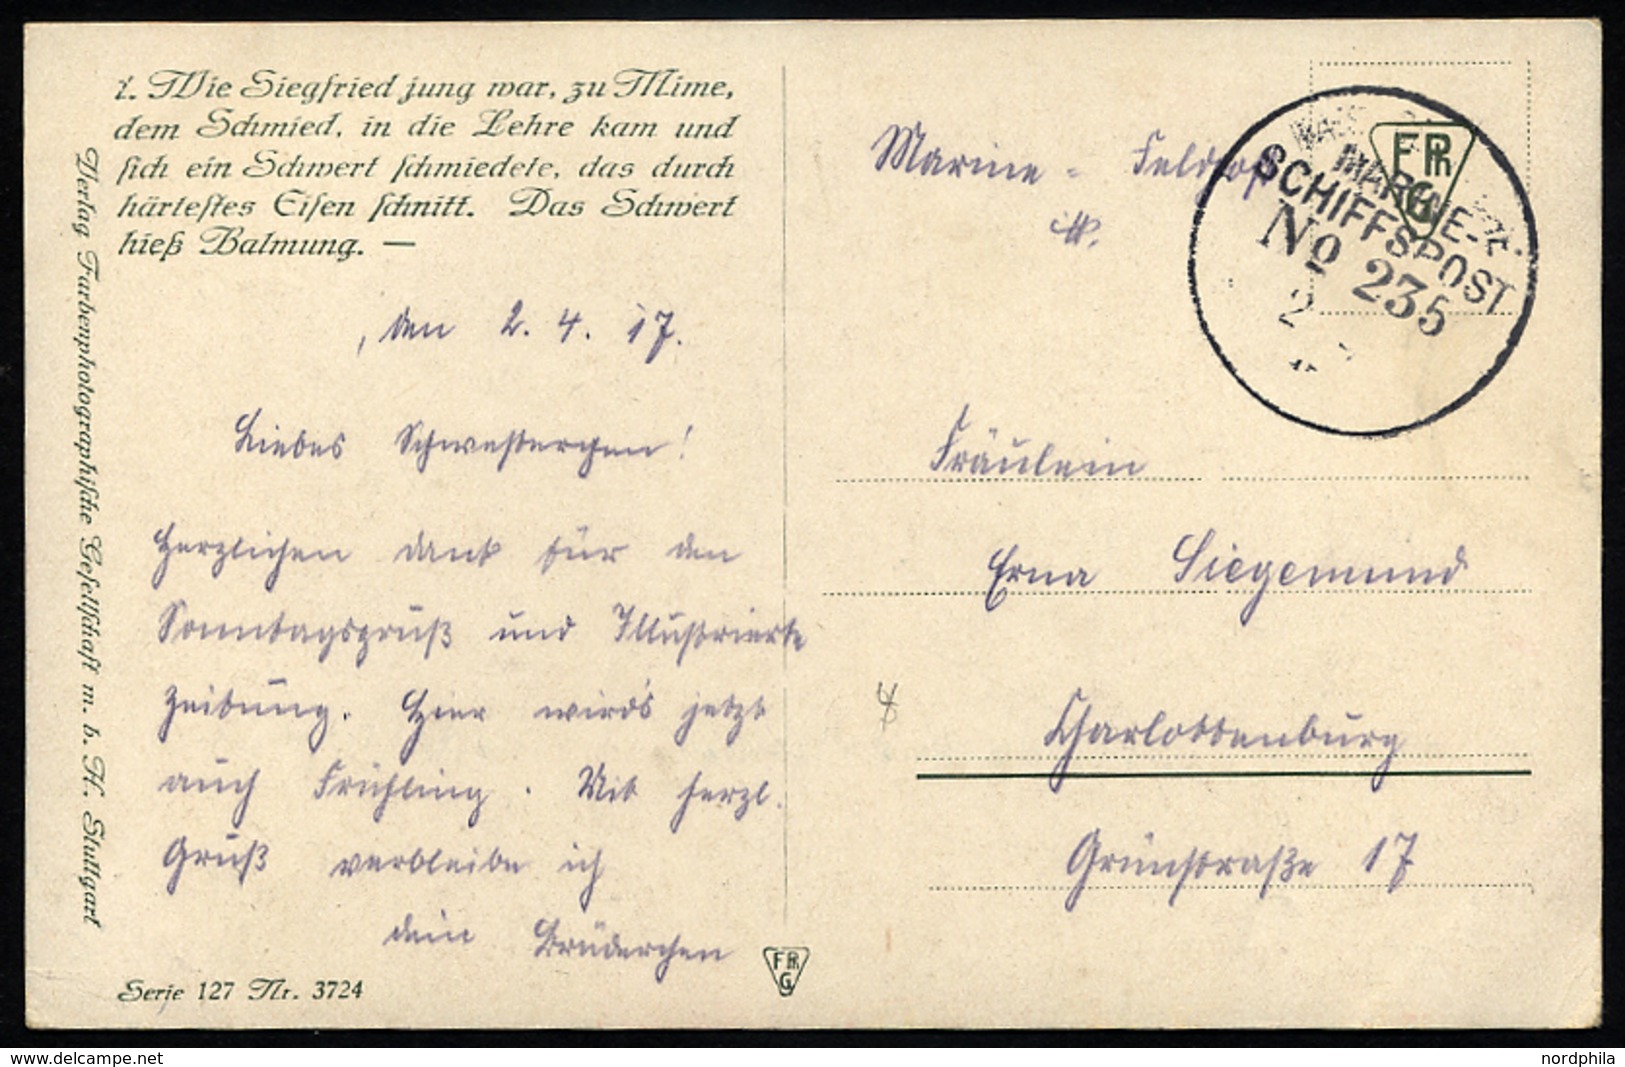 1. Wie Siegfried jung war, zu Mime,
dem Schmied, in die Lehre kam und
sich ein Schwert schmiedete, das durch
härtestes Eisen schnitt. Das Schwert
hieß Balmung. —
Verlag Farbenphotographische Gesellschaft m. b. H. Stuttgart
, den 2. 4. 17.
Liebes Schwesterchen!
Herzlichen Dank für den
Sonntagsgruß und Illustrierte
Zeitung. Hier wird's jetzt
auch Frühling. Mit herzl.
Gruß verbleibe ich
dein Brüderchen
Serie 127 Nr. 3724
FPhG
Marine - Feldpost
FPhG
MARINE-
SCHIFFSPOST
No 235
2
Fräulein
Erna Siegemund
Charlottenburg
Grünstraße 17
delcampe.net
nordphila